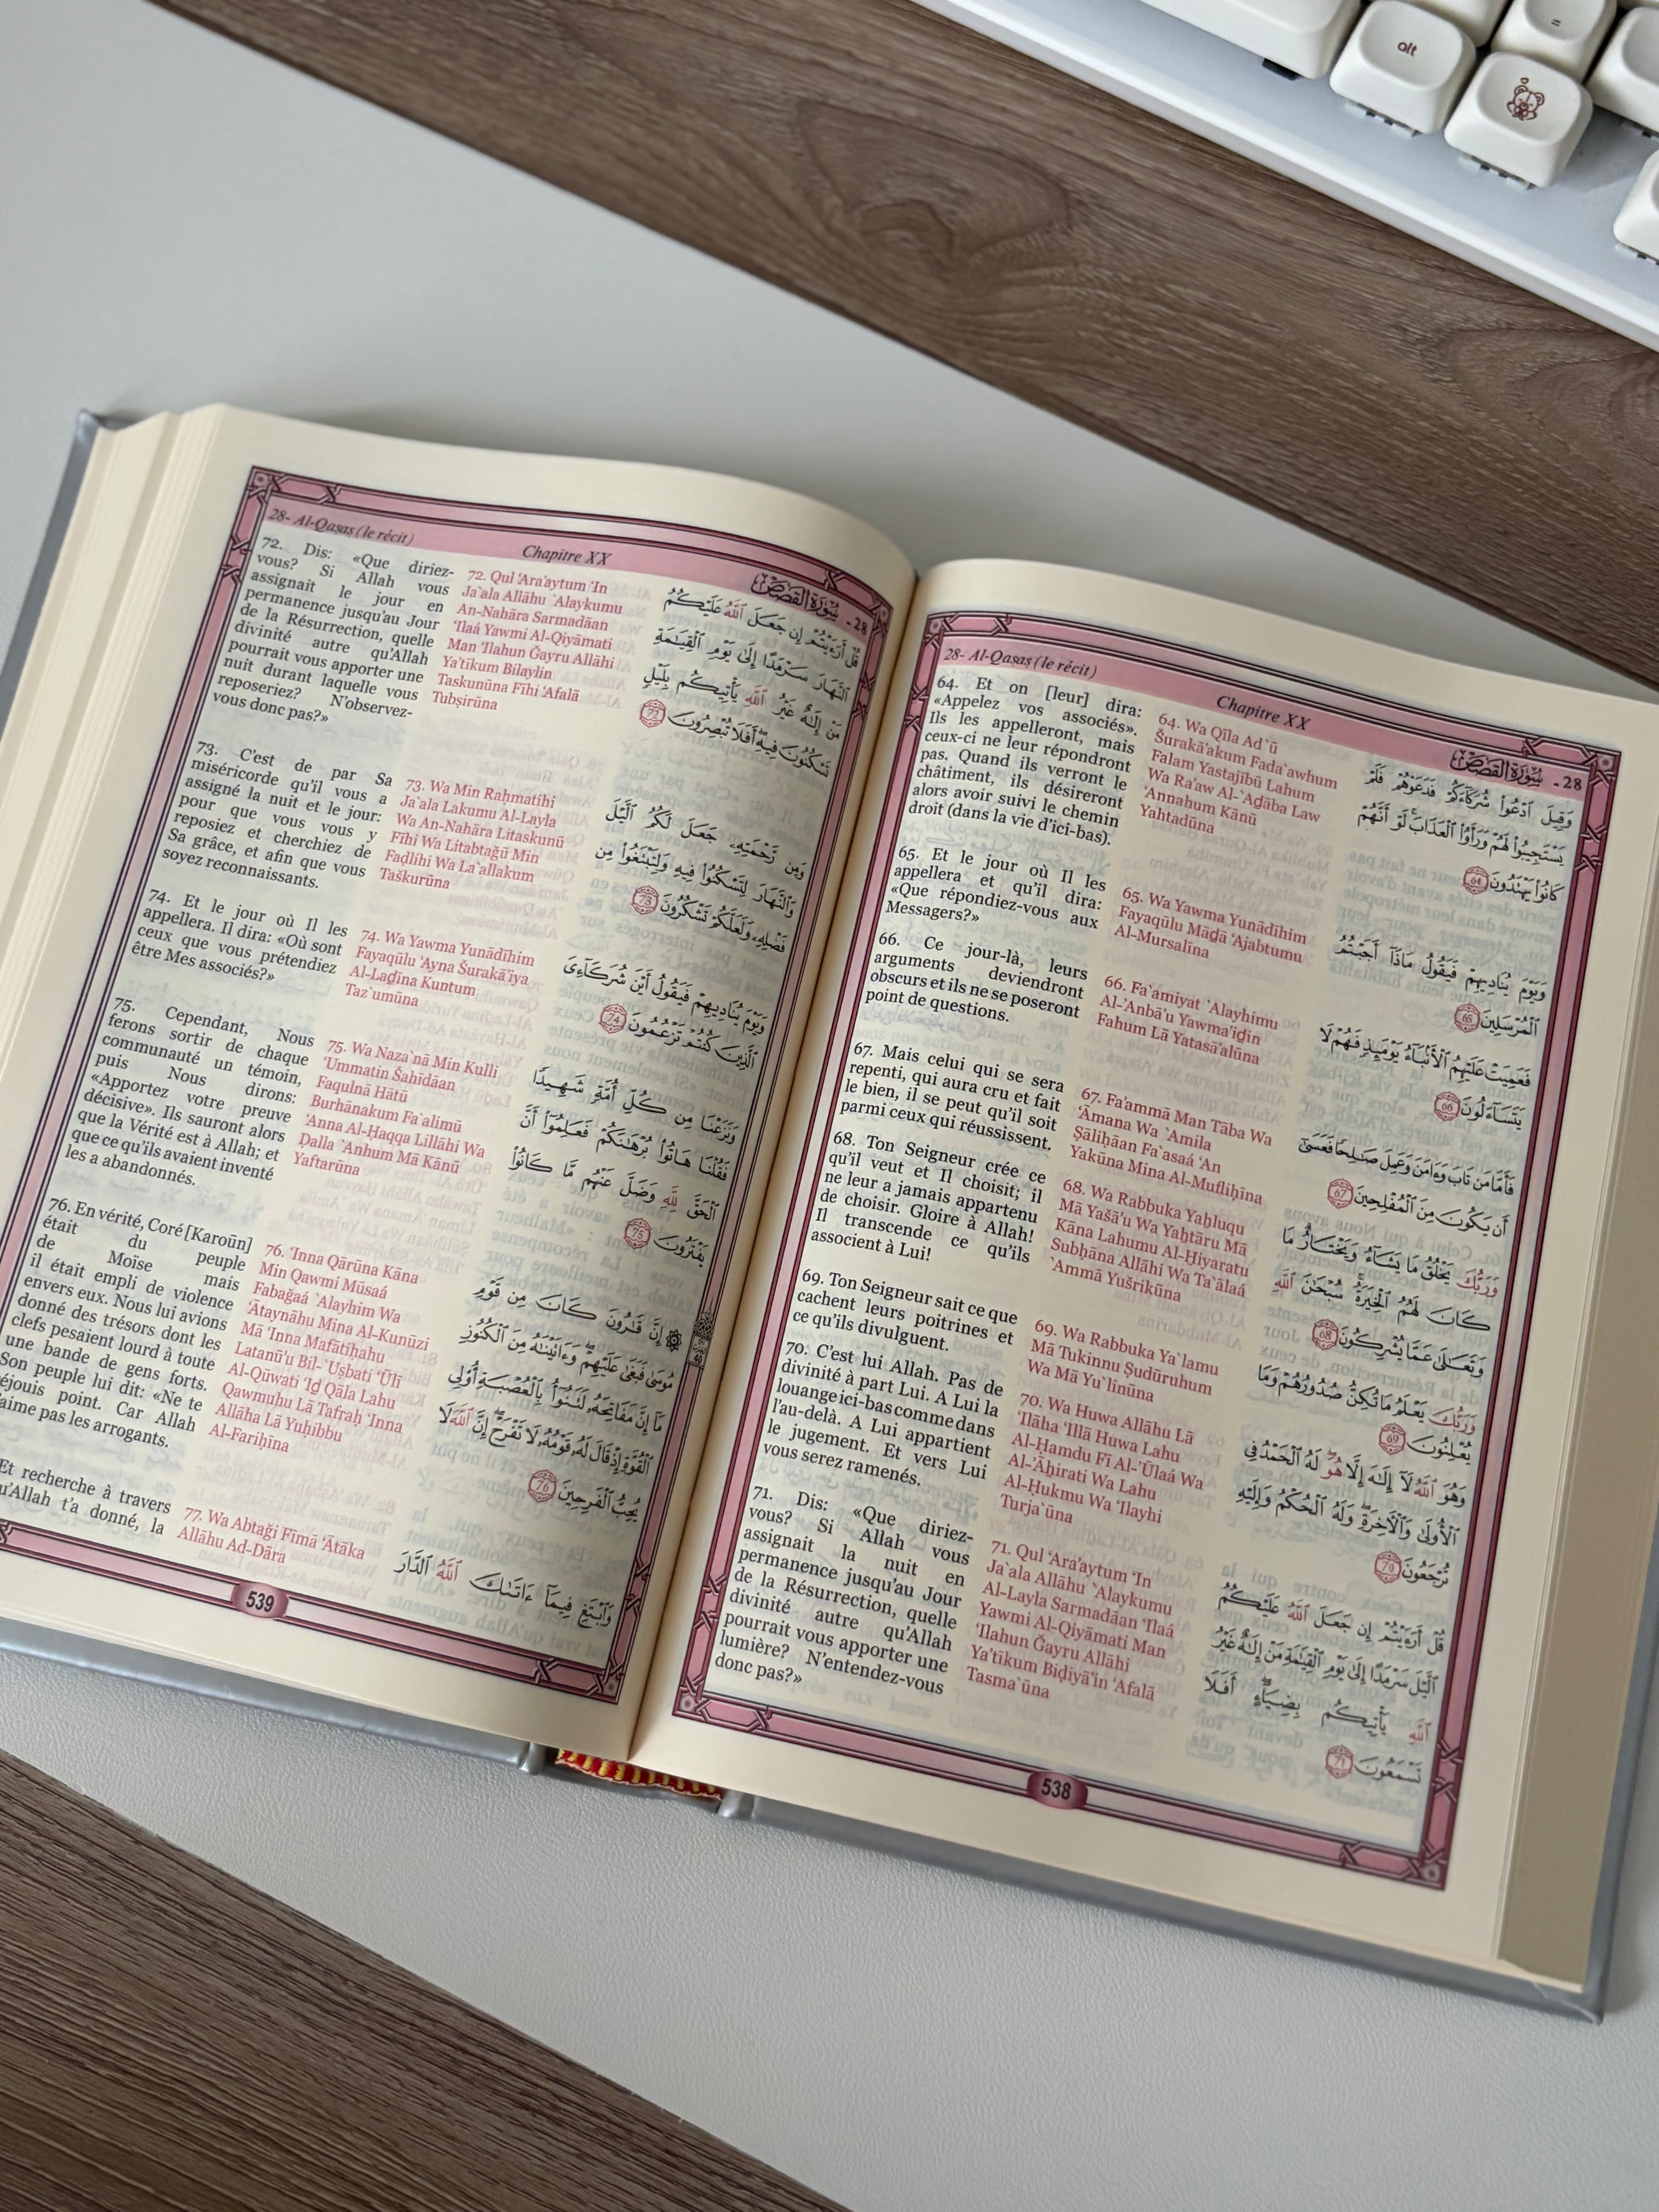 alt
=
28- Al-Qaṣaṣ (le récit)
Chapitre XX
28 - سُورَةُ القَصَصِ
64. Et on [leur] dira:
«Appelez vos associés».
Ils les appelleront, mais
ceux-ci ne leur répondront
pas. Quand ils verront le
châtiment, ils désireront
alors avoir suivi le chemin
droit (dans la vie d'ici-bas).
65. Et le jour où Il les
appellera et qu'il dira:
«Que répondiez-vous aux
Messagers?»
66. Ce jour-là, leurs
arguments deviendront
obscurs et ils ne se poseront
point de questions.
67. Mais celui qui se sera
repenti, qui aura cru et fait
le bien, il se peut qu'il soit
parmi ceux qui réussissent.
68. Ton Seigneur crée ce
qu'il veut et Il choisit; il
ne leur a jamais appartenu
de choisir. Gloire à Allah!
Il transcende ce qu'ils
associent à Lui!
69. Ton Seigneur sait ce que
cachent leurs poitrines et
ce qu'ils divulguent.
70. C'est lui Allah. Pas de
divinité à part Lui. A Lui la
louange ici-bas comme dans
l'au-delà. A Lui appartient
le jugement. Et vers Lui
vous serez ramenés.
71. Dis: «Que diriez-
vous? Si Allah vous
assignait la nuit en
permanence jusqu'au Jour
de la Résurrection, quelle
divinité autre qu'Allah
pourrait vous apporter une
lumière? N'entendez-vous
donc pas?»
64. Wa Qīla Ad`ū
Šurakā'akum Fada`awhum
Falam Yastajībū Lahum
Wa Ra'aw Al-`Aḏāba Law
'Annahum Kānū
Yahtadūna
65. Wa Yawma Yunādīhim
Fayaqūlu Māḏā 'Ajabtumu
Al-Mursalīna
66. Fa`amiyat `Alayhimu
Al-'Anbā'u Yawma'iḏin
Fahum Lā Yatasā'alūna
67. Fa'ammā Man Tāba Wa
'Āmana Wa `Amila
Ṣāliḥāan Fa`asaá 'An
Yakūna Mina Al-Mufliḥīna
68. Wa Rabbuka Yaẖluqu
Mā Yašā'u Wa Yaẖtāru Mā
Kāna Lahumu Al-Ḫiyaratu
Subḥāna Allāhi Wa Ta`ālaá
`Ammā Yušrikūna
69. Wa Rabbuka Ya`lamu
Mā Tukinnu Ṣudūruhum
Wa Mā Yu`linūna
70. Wa Huwa Allāhu Lā
'Ilāha 'Illā Huwa Lahu
Al-Ḥamdu Fī Al-'Ūlaá Wa
Al-'Āẖirati Wa Lahu
Al-Ḥukmu Wa 'Ilayhi
Turja`ūna
71. Qul 'Ara'aytum 'In
Ja`ala Allāhu `Alaykumu
Al-Layla Sarmadāan 'Ilaá
Yawmi Al-Qiyāmati Man
'Ilahun Ğayru Allāhi
Ya'tīkum Biḍiyā'in 'Afalā
Tasma`ūna
وَقِيلَ ٱدْعُوا۟ شُرَكَآءَكُمْ فَدَعَوْهُمْ فَلَمْ
يَسْتَجِيبُوا۟ لَهُمْ وَرَأَوُا۟ ٱلْعَذَابَ لَوْ أَنَّهُمْ
كَانُوا۟ يَهْتَدُونَ 64
وَيَوْمَ يُنَادِيهِمْ فَيَقُولُ مَاذَآ أَجَبْتُمُ
ٱلْمُرْسَلِينَ 65
فَعَمِيَتْ عَلَيْهِمُ ٱلْأَنۢبَآءُ يَوْمَئِذٍ فَهُمْ لَا
يَتَسَآءَلُونَ 66
فَأَمَّا مَن تَابَ وَءَامَنَ وَعَمِلَ صَـٰلِحًا فَعَسَىٰٓ
أَن يَكُونَ مِنَ ٱلْمُفْلِحِينَ 67
وَرَبُّكَ يَخْلُقُ مَا يَشَآءُ وَيَخْتَارُ مَا
كَانَ لَهُمُ ٱلْخِيَرَةُ سُبْحَـٰنَ ٱللَّهِ
وَتَعَـٰلَىٰ عَمَّا يُشْرِكُونَ 68
وَرَبُّكَ يَعْلَمُ مَا تُكِنُّ صُدُورُهُمْ وَمَا
يُعْلِنُونَ 69
وَهُوَ ٱللَّهُ لَآ إِلَـٰهَ إِلَّا هُوَ لَهُ ٱلْحَمْدُ فِى
ٱلْأُولَىٰ وَٱلْـَٔاخِرَةِ وَلَهُ ٱلْحُكْمُ وَإِلَيْهِ
تُرْجَعُونَ 70
قُلْ أَرَءَيْتُمْ إِن جَعَلَ ٱللَّهُ عَلَيْكُمُ
ٱلَّيْلَ سَرْمَدًا إِلَىٰ يَوْمِ ٱلْقِيَـٰمَةِ مَنْ إِلَـٰهٌ غَيْرُ
ٱللَّهِ يَأْتِيكُم بِضِيَآءٍ أَفَلَا
تَسْمَعُونَ 71
538
28- Al-Qaṣaṣ (le récit)
Chapitre XX
28 - سُورَةُ القَصَصِ
72. Dis: «Que diriez-
vous? Si Allah vous
assignait le jour en
permanence jusqu'au Jour
de la Résurrection, quelle
divinité autre qu'Allah
pourrait vous apporter une
nuit durant laquelle vous
reposeriez? N'observez-
vous donc pas?»
73. C'est de par Sa
miséricorde qu'il vous a
assigné la nuit et le jour:
pour que vous vous y
reposiez et cherchiez de
Sa grâce, et afin que vous
soyez reconnaissants.
74. Et le jour où Il les
appellera. Il dira: «Où sont
ceux que vous prétendiez
être Mes associés?»
75. Cependant, Nous
ferons sortir de chaque
communauté un témoin,
puis Nous dirons:
«Apportez votre preuve
décisive». Ils sauront alors
que la Vérité est à Allah; et
que ce qu'ils avaient inventé
les a abandonnés.
76. En vérité, Coré [Karoūn]
était du peuple
de Moïse mais
il était empli de violence
envers eux. Nous lui avions
donné des trésors dont les
clefs pesaient lourd à toute
une bande de gens forts.
Son peuple lui dit: «Ne te
réjouis point. Car Allah
n'aime pas les arrogants.
Et recherche à travers
qu'Allah t'a donné, la
72. Qul 'Ara'aytum 'In
Ja`ala Allāhu `Alaykumu
An-Nahāra Sarmadāan
'Ilaá Yawmi Al-Qiyāmati
Man 'Ilahun Ğayru Allāhi
Ya'tīkum Bilaylin
Taskunūna Fīhi 'Afalā
Tubṣirūna
73. Wa Min Raḥmatihi
Ja`ala Lakumu Al-Layla
Wa An-Nahāra Litaskunū
Fīhi Wa Litabtağū Min
Faḍlihi Wa La`allakum
Taškurūna
74. Wa Yawma Yunādīhim
Fayaqūlu 'Ayna Šurakā'iya
Al-Laḏīna Kuntum
Taz`umūna
75. Wa Naza`nā Min Kulli
'Ummatin Šahīdāan
Faqulnā Hātū
Burhānakum Fa`alimū
'Anna Al-Ḥaqqa Lillāhi Wa
Ḍalla `Anhum Mā Kānū
Yaftarūna
76. 'Inna Qārūna Kāna
Min Qawmi Mūsaá
Fabağaá `Alayhim Wa
'Ātaynāhu Mina Al-Kunūzi
Mā 'Inna Mafātiḥahu
Latanū'u Bīl-`Uṣbati 'Ūlī
Al-Qūwati 'Iḏ Qāla Lahu
Qawmuhu Lā Tafraḥ 'Inna
Allāha Lā Yuḥibbu
Al-Fariḥīna
77. Wa Abtaği Fīmā 'Ātāka
Allāhu Ad-Dāra
قُلْ أَرَءَيْتُمْ إِن جَعَلَ ٱللَّهُ عَلَيْكُمُ
ٱلنَّهَارَ سَرْمَدًا إِلَىٰ يَوْمِ ٱلْقِيَـٰمَةِ
مَنْ إِلَـٰهٌ غَيْرُ ٱللَّهِ يَأْتِيكُم بِلَيْلٍ
تَسْكُنُونَ فِيهِ أَفَلَا تُبْصِرُونَ 72
وَمِن رَّحْمَتِهِۦ جَعَلَ لَكُمُ ٱلَّيْلَ
وَٱلنَّهَارَ لِتَسْكُنُوا۟ فِيهِ وَلِتَبْتَغُوا۟ مِن
فَضْلِهِۦ وَلَعَلَّكُمْ تَشْكُرُونَ 73
وَيَوْمَ يُنَادِيهِمْ فَيَقُولُ أَيْنَ شُرَكَآءِىَ
ٱلَّذِينَ كُنتُمْ تَزْعُمُونَ 74
وَنَزَعْنَا مِن كُلِّ أُمَّةٍ شَهِيدًا
فَقُلْنَا هَاتُوا۟ بُرْهَـٰنَكُمْ فَعَلِمُوٓا۟ أَنَّ
ٱلْحَقَّ لِلَّهِ وَضَلَّ عَنْهُم مَّا كَانُوا۟
يَفْتَرُونَ 75
۞ إِنَّ قَـٰرُونَ كَانَ مِن قَوْمِ
مُوسَىٰ فَبَغَىٰ عَلَيْهِمْ وَءَاتَيْنَـٰهُ مِنَ ٱلْكُنُوزِ
مَآ إِنَّ مَفَاتِحَهُۥ لَتَنُوٓأُ بِٱلْعُصْبَةِ أُو۟لِى
ٱلْقُوَّةِ إِذْ قَالَ لَهُۥ قَوْمُهُۥ لَا تَفْرَحْ إِنَّ ٱللَّهَ لَا
يُحِبُّ ٱلْفَرِحِينَ 76
وَٱبْتَغِ فِيمَآ ءَاتَىٰكَ ٱللَّهُ ٱلدَّارَ
539